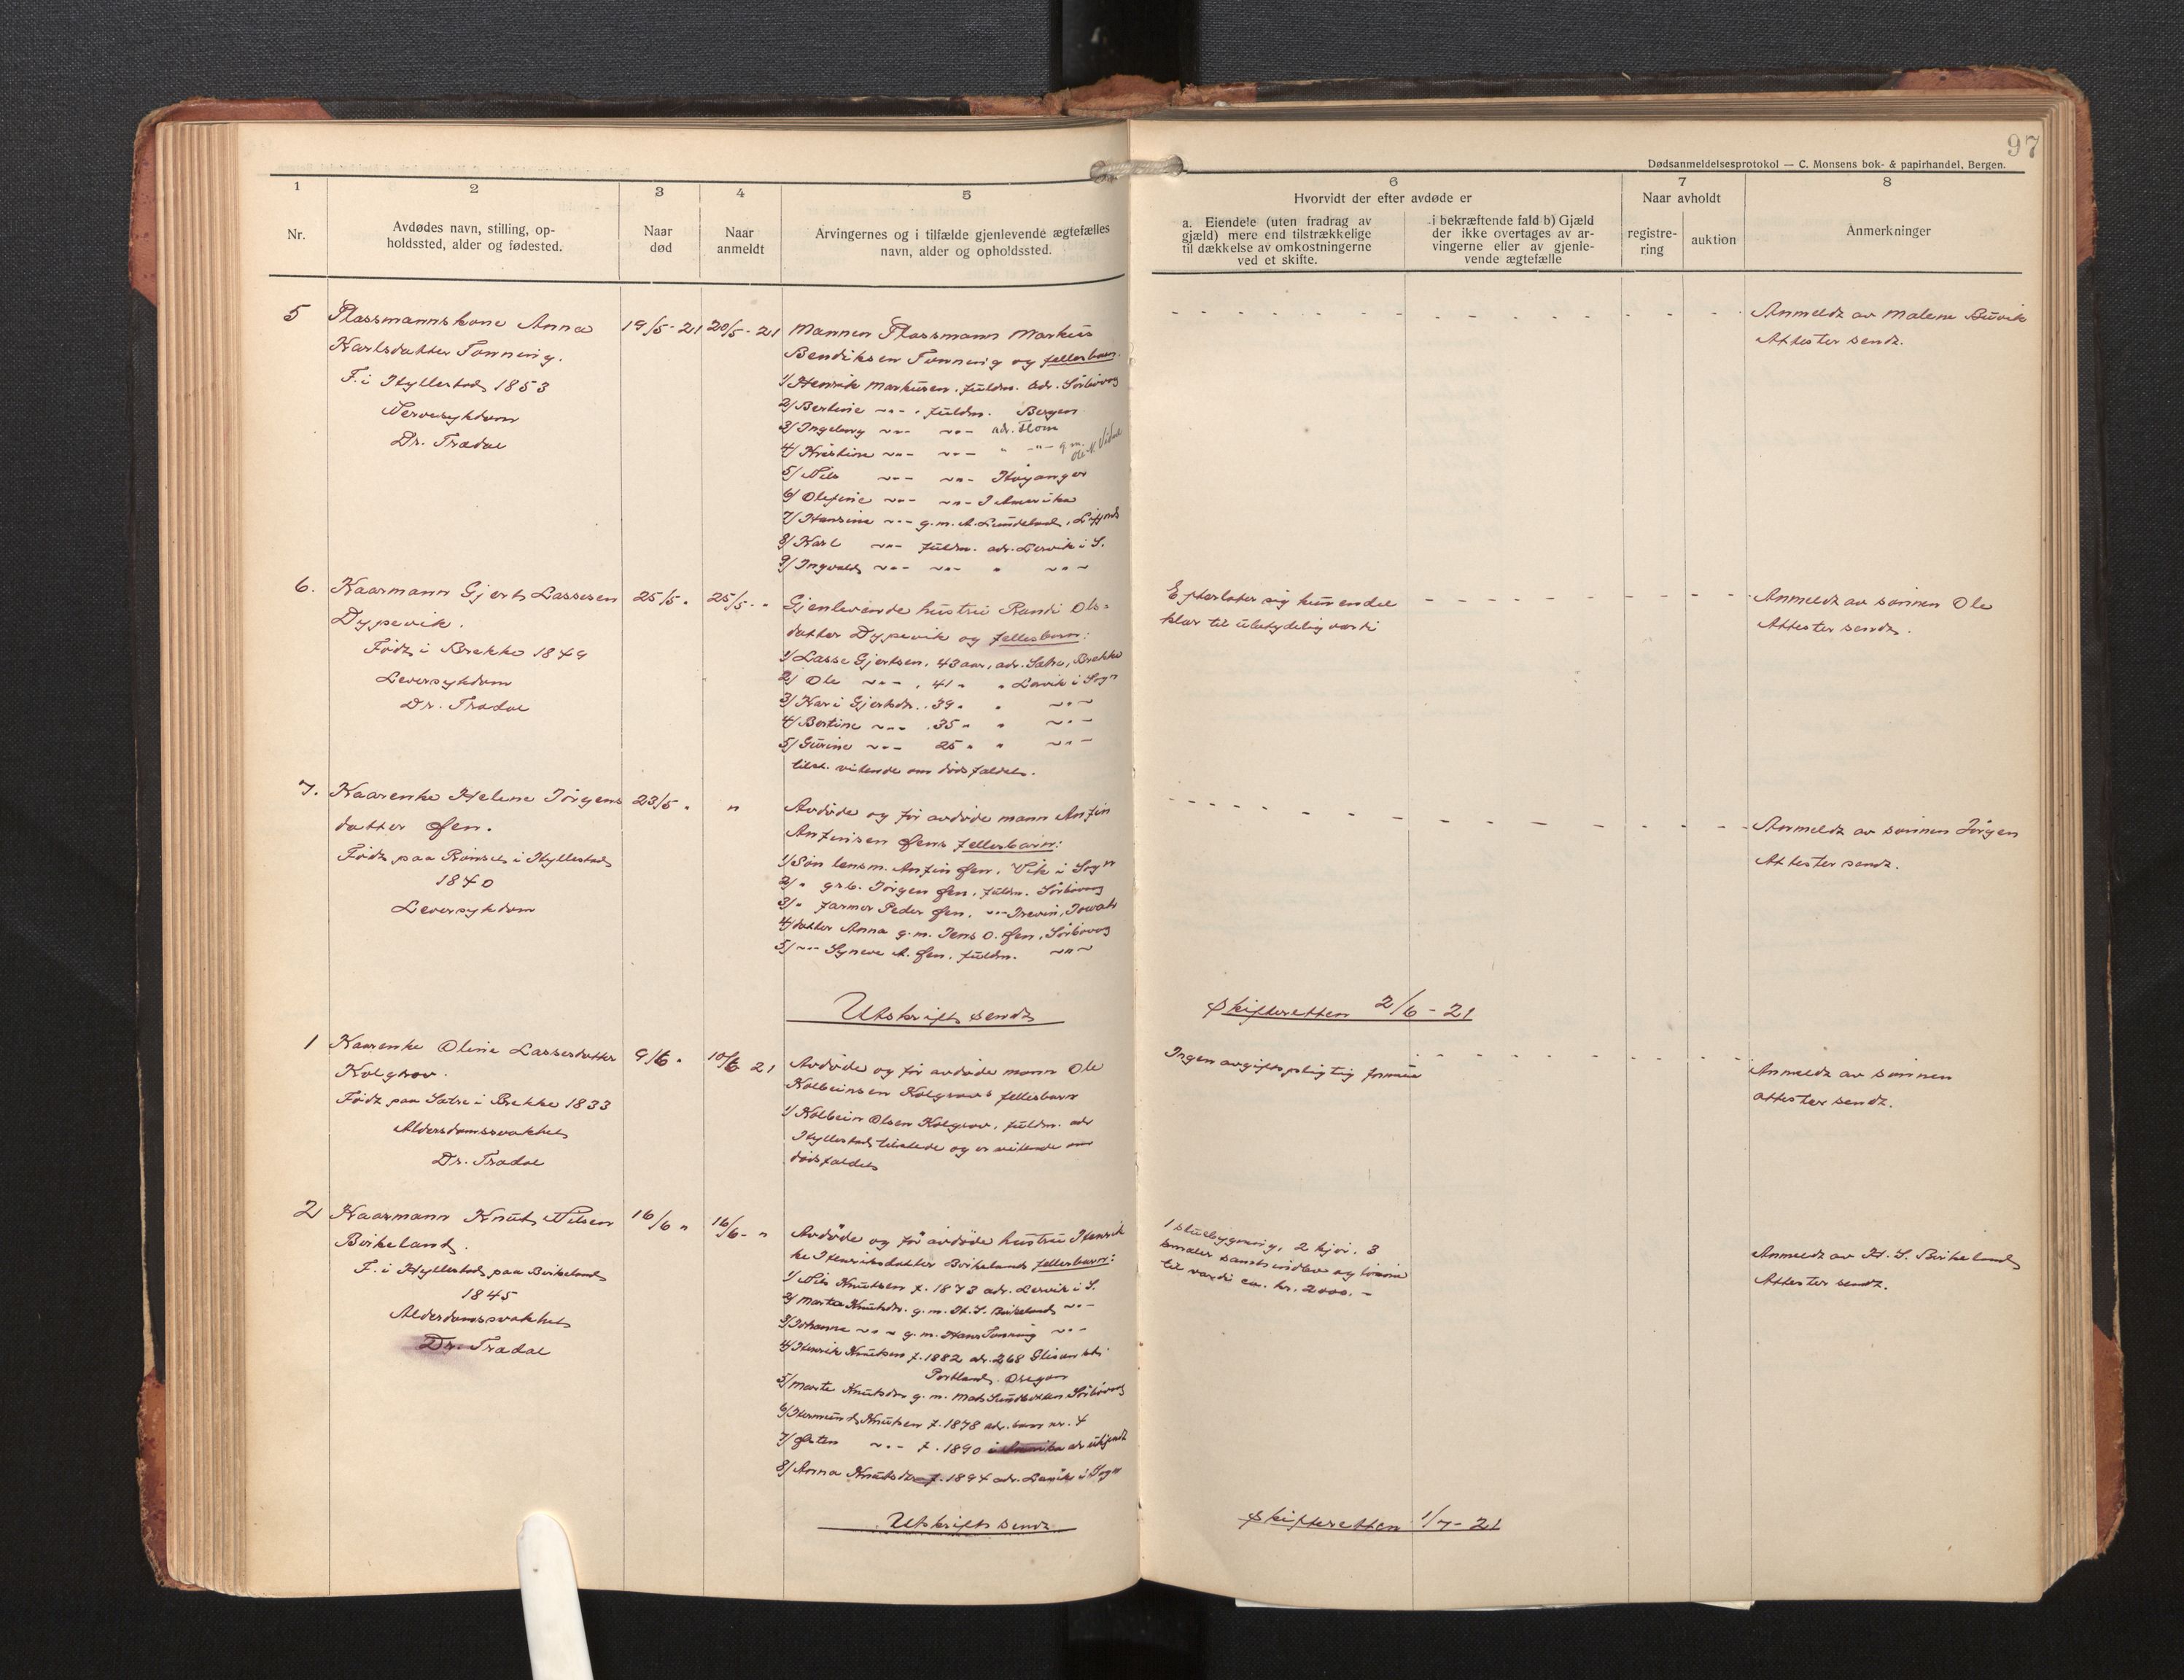 97
Dødsanmeldelsesprotokol — C. Monsens bok- & papirhandel, Bergen.
1
Nr.
2
Avdødes navn, stilling, op-
holdssted, alder og fødested.
3
Naar
død
4
Naar
anmeldt
5
Arvingernes og i tilfælde gjenlevende ægtefælles
navn, alder og opholdssted.
6
Hvorvidt der efter avdøde er
a. Eiendele (uten fradrag av
gjæld) mere end tilstrækkelige
til dækkelse av omkostningerne
ved et skifte.
i bekræftende fald b) Gjæld
der ikke overtages av ar-
vingerne eller av gjenle-
vende ægtefælle
7
Naar avholdt
registre-
ring
auktion
8
Anmerkninger
5
Plassmannskone Anna
Karlsdatter Tonning.
F. i Hyllestad 1853
Nervesykdom
Dr. Tradal
19/5-21
20/5-21
Mannen Plassmann Markus
Bendiksen Tonning og fellesbarn.
1/ Henrik Markusen. fuldm. adr. Sörbövag
2/ Bertine -"- fuldm. Bergen
3/ Ingeborg -"- -"- adr. Flom
4/ Kristine -"- -"- " -"- g.m.
5/ Nils -"- -"- Höyanger
6/ Olefine -"- -"- I Amerika
7/ Hansine -"- g.m. A. Lundeland,
8/ Karl -"- fuldm. adr. Lervik i S.
9/ Ingvald -"- -"- " -"-
Anmeldt av Malene Buvik
Attester sendt.
6.
Kaarmann Gjert Lassesen
Dypevik.
Født i Brekke 1849
Leversykdom
Dr. Tradal
25/5 "
25/5 - "
Gjenlevende hustru Randi Ols-
datter Dypevik og fellesbarn:
1/ Lasse Gjertsen, 43 aar, adr. Satre, Brekke
2/ Ole -"- , 41 " " Lervik i Sogn
3/ Kari Gjertsdr. 39 " " -"-
4/ Bertine -"- 35 " " -"-
5/ Gurine -"- 25 " " -"-
tilst. vitende om dødsfaldet.
Efterlater sig kun endel
klær til ubetydelig værdi
Anmeldt av sönnen Ole
Attester sendt.
7.
Kaarenke Helene Jörgens
datter Øen.
Født paa Rönset i Hyllestad
1840
Leversykdom
23/5 "
"
Avdöde og för avdöde mann Anfin
Anfinsen Øens fellesbarn:
1/ Sön lensm. Anfin Øen, Vik i Sogn
2/ " grb. Jörgen Øen, fuldm. Sörbövag
3/ " farmer Peder Øen, -"-
4/ datter Anna g.m. Jens O. Øen, Sörbövag
5/ -"- Syneve A. Øen, fuldm. -"-
Anmeldt av sönnen Jörgen
Attester sendt.
Utskrift sendt
Skifteretten 2/6-21
1
Kaarenke Oline Lassesdatter
Kolgrov.
Født paa Satre i Brekke 1833
Aldersdomssvakhet
Dr. Tradal
9/6 "
10/6 21
Avdöde og för avdöde mann Ole
Kolbeinsen Kolgrovs fellesbarn
1/ Kolbein Olsen Kolgrov, fuldm. adr
Hyllestad tilstede og er vitende om
dødsfaldet
Ingen avgiftspligtig formue
Anmeldt av sönnen
attester sendt.
2
Kaarmann Knut Nilsen
Birkeland.
F. i Hyllestad paa Birkeland
1845
Alderdomssvakhet
Dr. Tradal
16/6 "
16/6 - "
Avdöde og för avdöde hustru Henrik
ke Henriksdatter Birkelands fellesbarn:
1/ Nils Knutsen f. 1873 adr. Lervik i S.
2/ Marta Knutsdr. g.m. H. S. Birkeland -"-
3/ Johanne -"- g.m. Hans Tonning -"-
4/ Henrik Knutsen f. 1882 adr. 268 Glisan str.
Portland. Oregon
5/ Marte Knutsdr g.m. Mads Sundbotten Sörbövag
6/ Hermund Knutsen f. 1878 adr. barn nr. 4
7/ Østen -"- f. 1890 i Amerika adr ukjendt
8/ Anna Knutsdr f. 1894 adr. Lervik i Sogn
1 stuebygning, 2 kjör, 3
smaler samt indbo og lösöre
til værdi ca. kr. 2000.-
Anmeldt av H. S. Birkeland
Attester sendt.
Utskrift sendt
Skifteretten 1/7-21